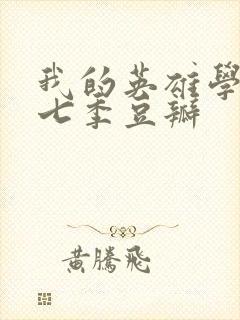 我的英雄學
七季豆瓣
黃騰飛